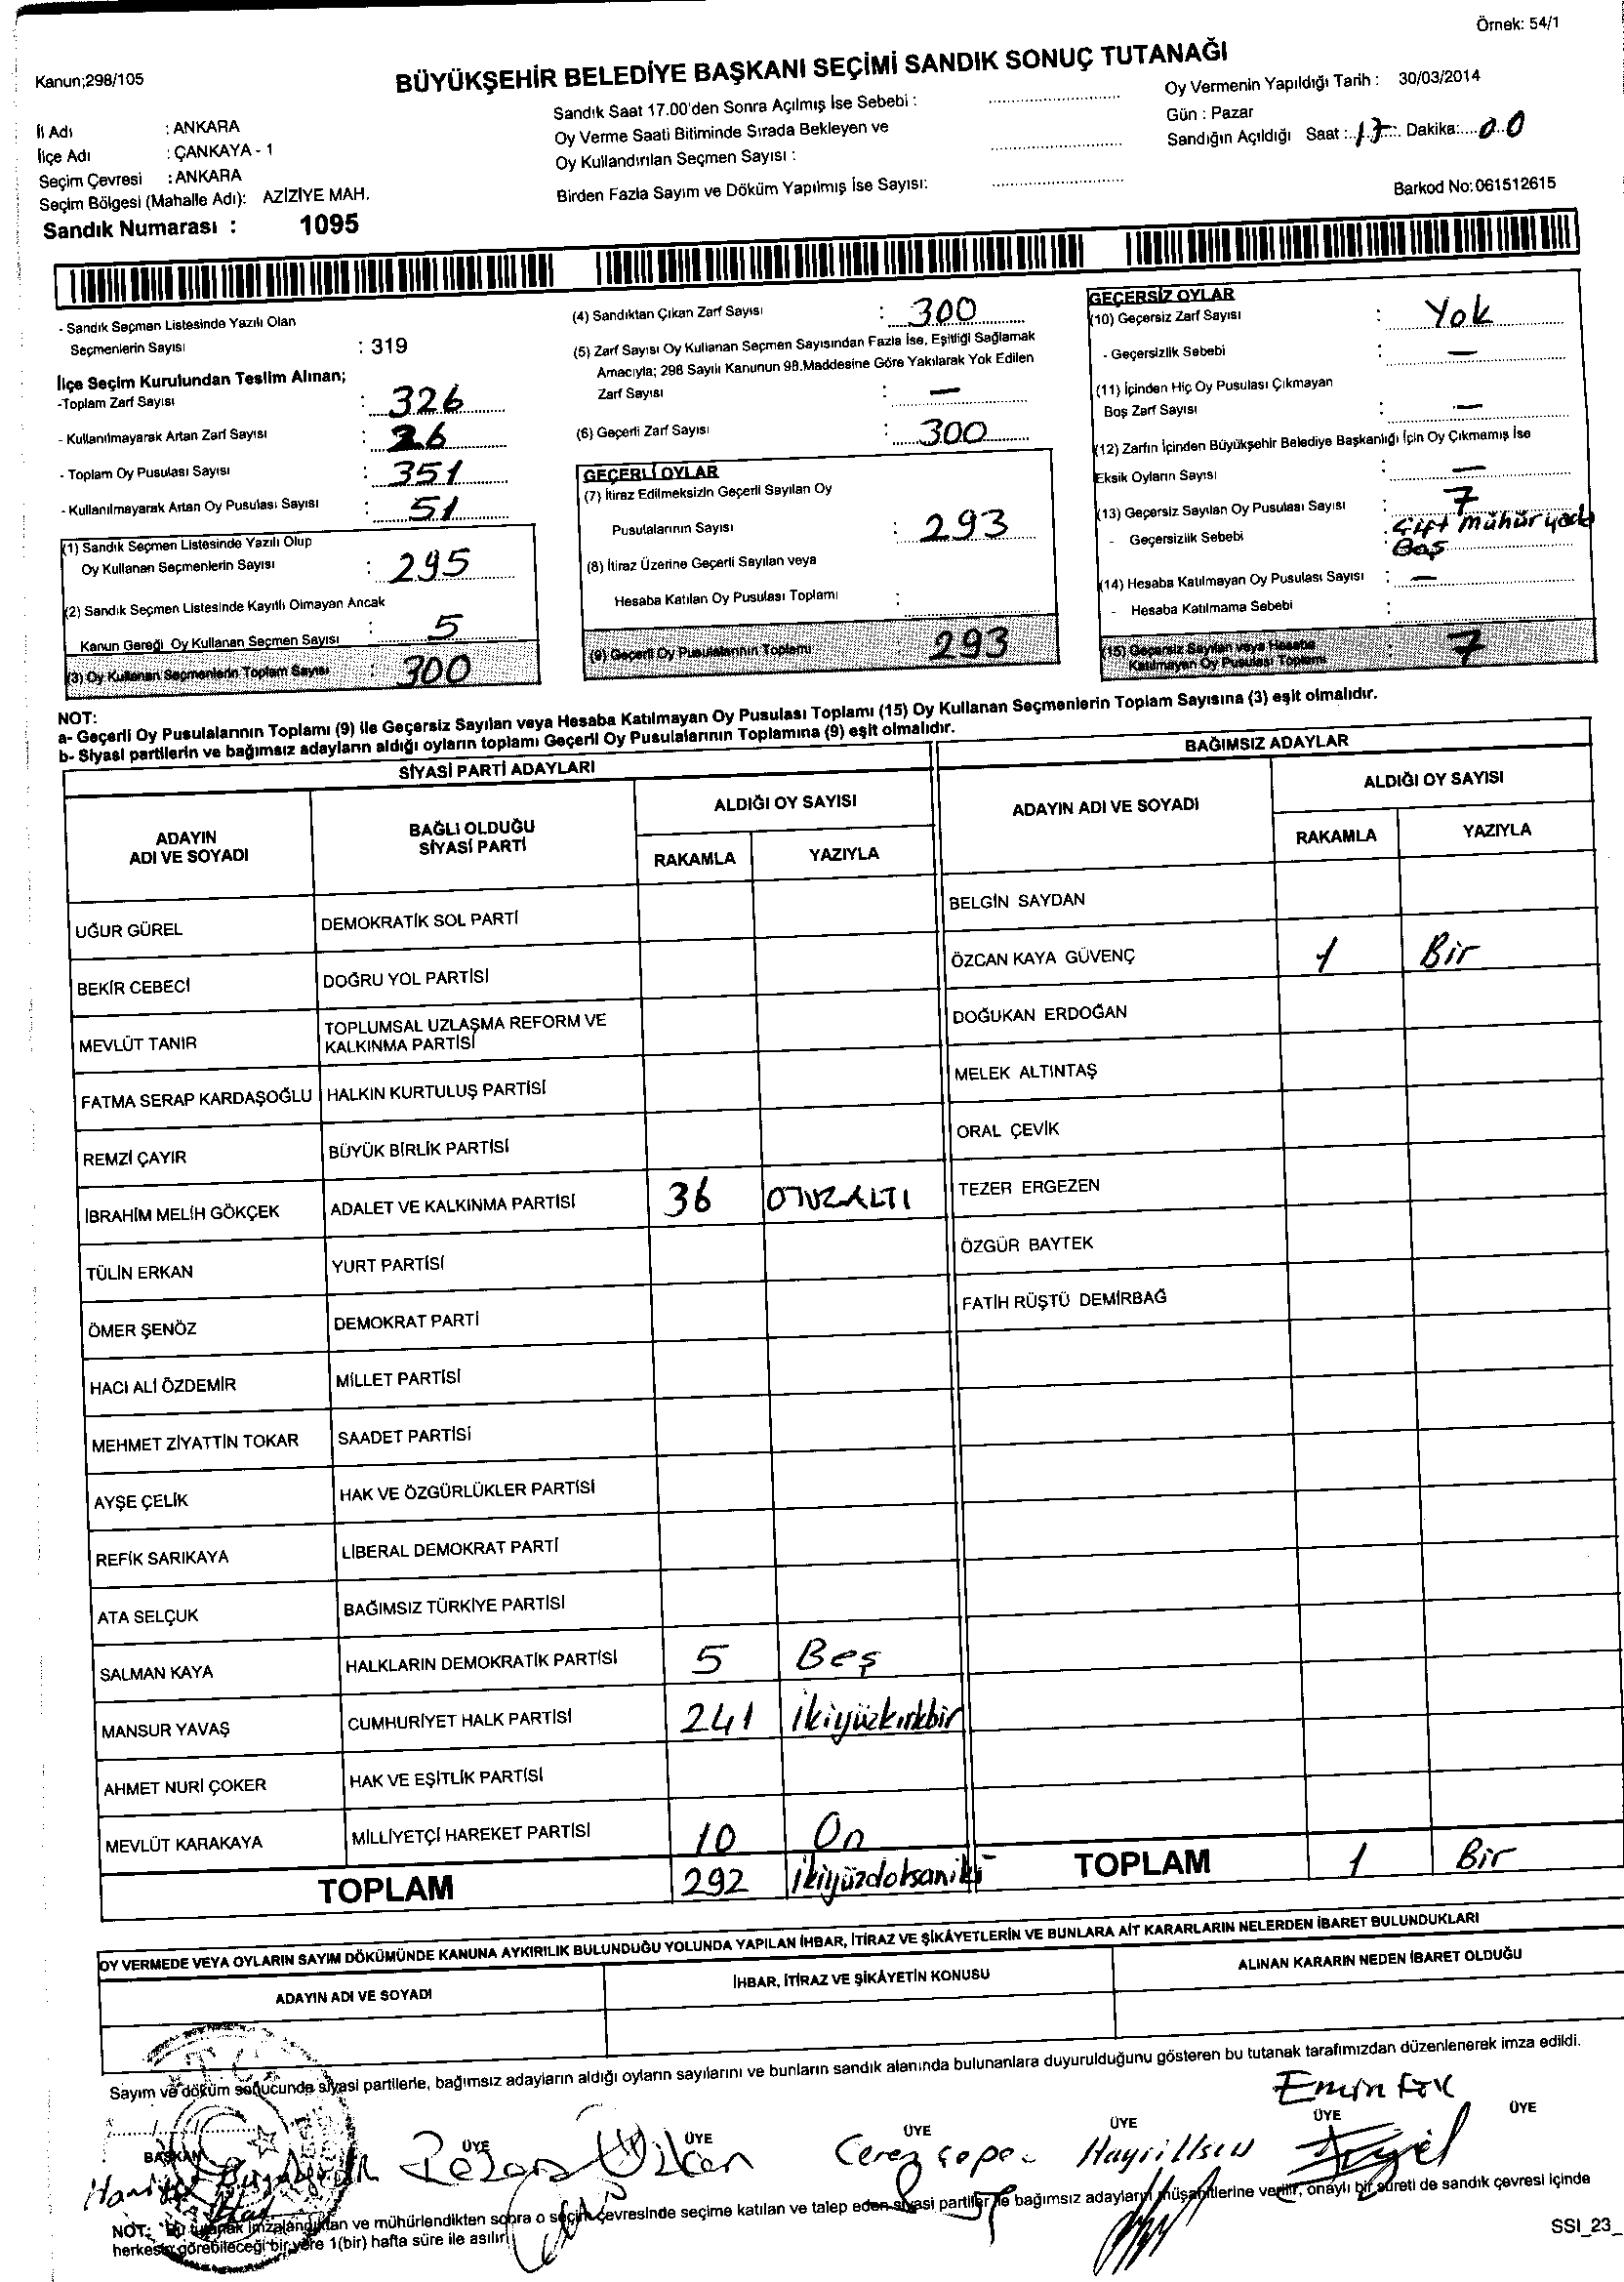 Örnek: 54/1
Kanun;298/105
BÜYÜKŞEHİR BELEDİYE BAŞKANI SEÇİMİ SANDIK SONUÇ TUTANAĞI
İl Adı : ANKARA
İlçe Adı : ÇANKAYA - 1
Seçim Çevresi : ANKARA
Seçim Bölgesi (Mahalle Adı): AZİZİYE MAH.
Sandık Numarası : 1095
Sandık Saat 17.00'den Sonra Açılmış İse Sebebi :
Oy Verme Saati Bitiminde Sırada Bekleyen ve
Oy Kullandırılan Seçmen Sayısı :
Birden Fazla Sayım ve Döküm Yapılmış İse Sayısı:
Oy Vermenin Yapıldığı Tarih : 30/03/2014
Gün : Pazar
Sandığın Açıldığı Saat : 17 Dakika: 00
Barkod No: 061512615
- Sandık Seçmen Listesinde Yazılı Olan
Seçmenlerin Sayısı : 319
İlçe Seçim Kurulundan Teslim Alınan;
-Toplam Zarf Sayısı : 326
- Kullanılmayarak Artan Zarf Sayısı : 26
- Toplam Oy Pusulası Sayısı : 351
- Kullanılmayarak Artan Oy Pusulası Sayısı : 51
(1) Sandık Seçmen Listesinde Yazılı Olup
Oy Kullanan Seçmenlerin Sayısı : 295
(2) Sandık Seçmen Listesinde Kayıtlı Olmayan Ancak
Kanun Gereği Oy Kullanan Seçmen Sayısı : 5
(3) Oy Kullanan Seçmenlerin Toplam Sayısı : 300
(4) Sandıktan Çıkan Zarf Sayısı : 300
(5) Zarf Sayısı Oy Kullanan Seçmen Sayısından Fazla İse, Eşitliği Sağlamak
Amacıyla; 298 Sayılı Kanunun 98.Maddesine Göre Yakılarak Yok Edilen
Zarf Sayısı : —
(6) Geçerli Zarf Sayısı : 300
GEÇERLİ OYLAR
(7) İtiraz Edilmeksizin Geçerli Sayılan Oy
Pusulalarının Sayısı : 293
(8) İtiraz Üzerine Geçerli Sayılan veya
Hesaba Katılan Oy Pusulası Toplamı :
(9) Geçerli Oy Pusulalarının Toplamı : 293
GEÇERSİZ OYLAR
(10) Geçersiz Zarf Sayısı : Yok
- Geçersizlik Sebebi : —
(11) İçinden Hiç Oy Pusulası Çıkmayan
Boş Zarf Sayısı : —
(12) Zarfın İçinden Büyükşehir Belediye Başkanlığı İçin Oy Çıkmamış İse
Eksik Oyların Sayısı : —
(13) Geçersiz Sayılan Oy Pusulası Sayısı : 7
- Geçersizlik Sebebi : Çift mühür yada
Boş
(14) Hesaba Katılmayan Oy Pusulası Sayısı : —
- Hesaba Katılmama Sebebi :
(15) Geçersiz Sayılan veya Hesaba
Katılmayan Oy Pusulası Toplamı : 7
NOT:
a- Geçerli Oy Pusulalarının Toplamı (9) ile Geçersiz Sayılan veya Hesaba Katılmayan Oy Pusulası Toplamı (15) Oy Kullanan Seçmenlerin Toplam Sayısına (3) eşit olmalıdır.
b- Siyasi partilerin ve bağımsız adayların aldığı oyların toplamı Geçerli Oy Pusulalarının Toplamına (9) eşit olmalıdır.
SİYASİ PARTİ ADAYLARI
ADAYIN ADI VE SOYADI BAĞLI OLDUĞU SİYASİ PARTİ ALDIĞI OY SAYISI
RAKAMLA YAZIYLA
UĞUR GÜREL DEMOKRATİK SOL PARTİ
BEKİR CEBECİ DOĞRU YOL PARTİSİ
MEVLÜT TANIR TOPLUMSAL UZLAŞMA REFORM VE KALKINMA PARTİSİ
FATMA SERAP KARDAŞOĞLU HALKIN KURTULUŞ PARTİSİ
REMZİ ÇAYIR BÜYÜK BİRLİK PARTİSİ
İBRAHİM MELİH GÖKÇEK ADALET VE KALKINMA PARTİSİ 36 OTUZALTI
TÜLİN ERKAN YURT PARTİSİ
ÖMER ŞENÖZ DEMOKRAT PARTİ
HACI ALİ ÖZDEMİR MİLLET PARTİSİ
MEHMET ZİYATTİN TOKAR SAADET PARTİSİ
AYŞE ÇELİK HAK VE ÖZGÜRLÜKLER PARTİSİ
REFİK SARIKAYA LİBERAL DEMOKRAT PARTİ
ATA SELÇUK BAĞIMSIZ TÜRKİYE PARTİSİ
SALMAN KAYA HALKLARIN DEMOKRATİK PARTİSİ 5 Beş
MANSUR YAVAŞ CUMHURİYET HALK PARTİSİ 241 İkiyüzkırkbir
AHMET NURİ ÇOKER HAK VE EŞİTLİK PARTİSİ
MEVLÜT KARAKAYA MİLLİYETÇİ HAREKET PARTİSİ 10 On
TOPLAM 292 İkiyüzdoksaniki
BAĞIMSIZ ADAYLAR
ADAYIN ADI VE SOYADI ALDIĞI OY SAYISI
RAKAMLA YAZIYLA
BELGİN SAYDAN
ÖZCAN KAYA GÜVENÇ 1 Bir
DOĞUKAN ERDOĞAN
MELEK ALTINTAŞ
ORAL ÇEVİK
TEZER ERGEZEN
ÖZGÜR BAYTEK
FATİH RÜŞTÜ DEMİRBAĞ
TOPLAM 1 Bir
OY VERMEDE VEYA OYLARIN SAYIM DÖKÜMÜNDE KANUNA AYKIRILIK BULUNDUĞU YOLUNDA YAPILAN İHBAR, İTİRAZ VE ŞİKÂYETLERİN VE BUNLARA AİT KARARLARIN NELERDEN İBARET BULUNDUKLARI
ADAYIN ADI VE SOYADI İHBAR, İTİRAZ VE ŞİKÂYETİN KONUSU ALINAN KARARIN NEDEN İBARET OLDUĞU
Sayım ve döküm sonucunda siyasi partilerle, bağımsız adayların aldığı oyların sayılarını ve bunların sandık alanında bulunanlara duyurulduğunu gösteren bu tutanak tarafımızdan düzenlenerek imza edildi.
T.C.
BAŞKAN ÜYE ÜYE ÜYE ÜYE ÜYE ÜYE
NOT: Bu tutanak imzalandıktan ve mühürlendikten sonra o seçim çevresinde seçime katılan ve talep eden siyasi partiler ile bağımsız adayların müşahitlerine verilir, onaylı bir sureti de sandık çevresi içinde
herkesin görebileceği bir yere 1(bir) hafta süre ile asılır.
SSI_23_